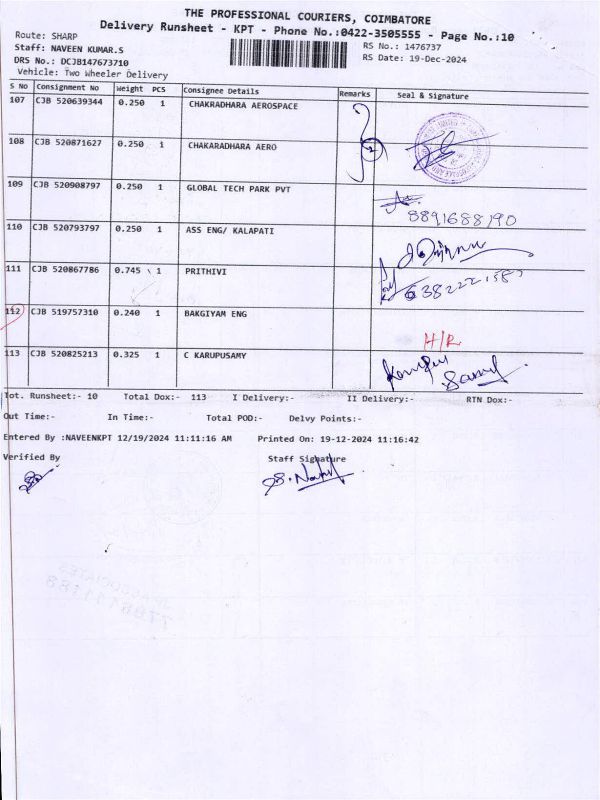 THE PROFESSIONAL COURIERS, COIMBATORE
Delivery Runsheet - KPT - Phone No.:0422-3505555 - Page No.:10
Route: SHARP
RS No.: 1476737
Staff: NAVEEN KUMAR.S
RS Date: 19-Dec-2024
DRS No.: DCJB147673710
Vehicle: Two Wheeler Delivery
S No Consignment No Weight PCS Consignee Details Remarks Seal & Signature
107 CJB 520639344 0.250 1 CHAKRADHARA AEROSPACE
108 CJB 520871627 0.250 1 CHAKARADHARA AERO 2
109 CJB 520908797 0.250 1 GLOBAL TECH PARK PVT
8891688190
110 CJB 520793797 0.250 1 ASS ENG/ KALAPATI
111 CJB 520867786 0.745 1 PRITHIVI
112 CJB 519757310 0.240 1 BAKGIYAM ENG H/R
113 CJB 520825213 0.325 1 C KARUPUSAMY
Tot. Runsheet:- 10 Total Dox:- 113 I Delivery:- II Delivery:- RTN Dox:-
Out Time:- In Time:- Total POD:- Delvy Points:-
Entered By :NAVEENKPT 12/19/2024 11:11:16 AM Printed On: 19-12-2024 11:16:42
Verified By Staff Signature